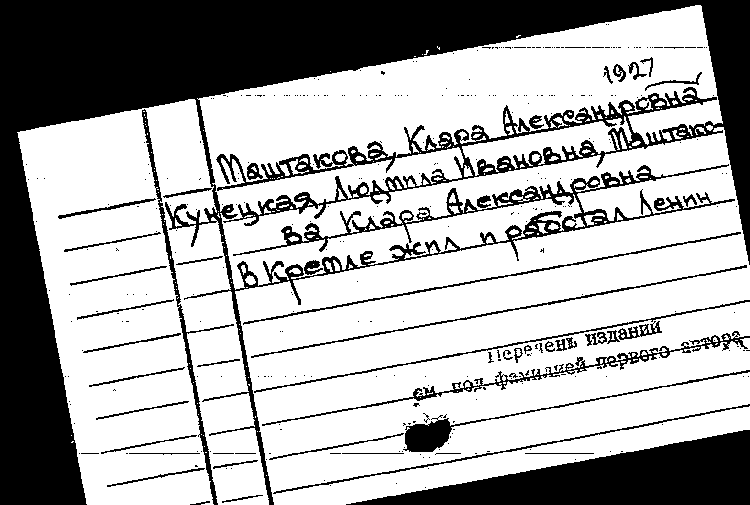 1927
Маштакова, Клара Александровна
Кунецкая, Людмила Ивановна, Маштако-
ва, Клара Александровна
В Кремле жил и работал Ленин
Перечень изданий
см. под фамилией первого автора